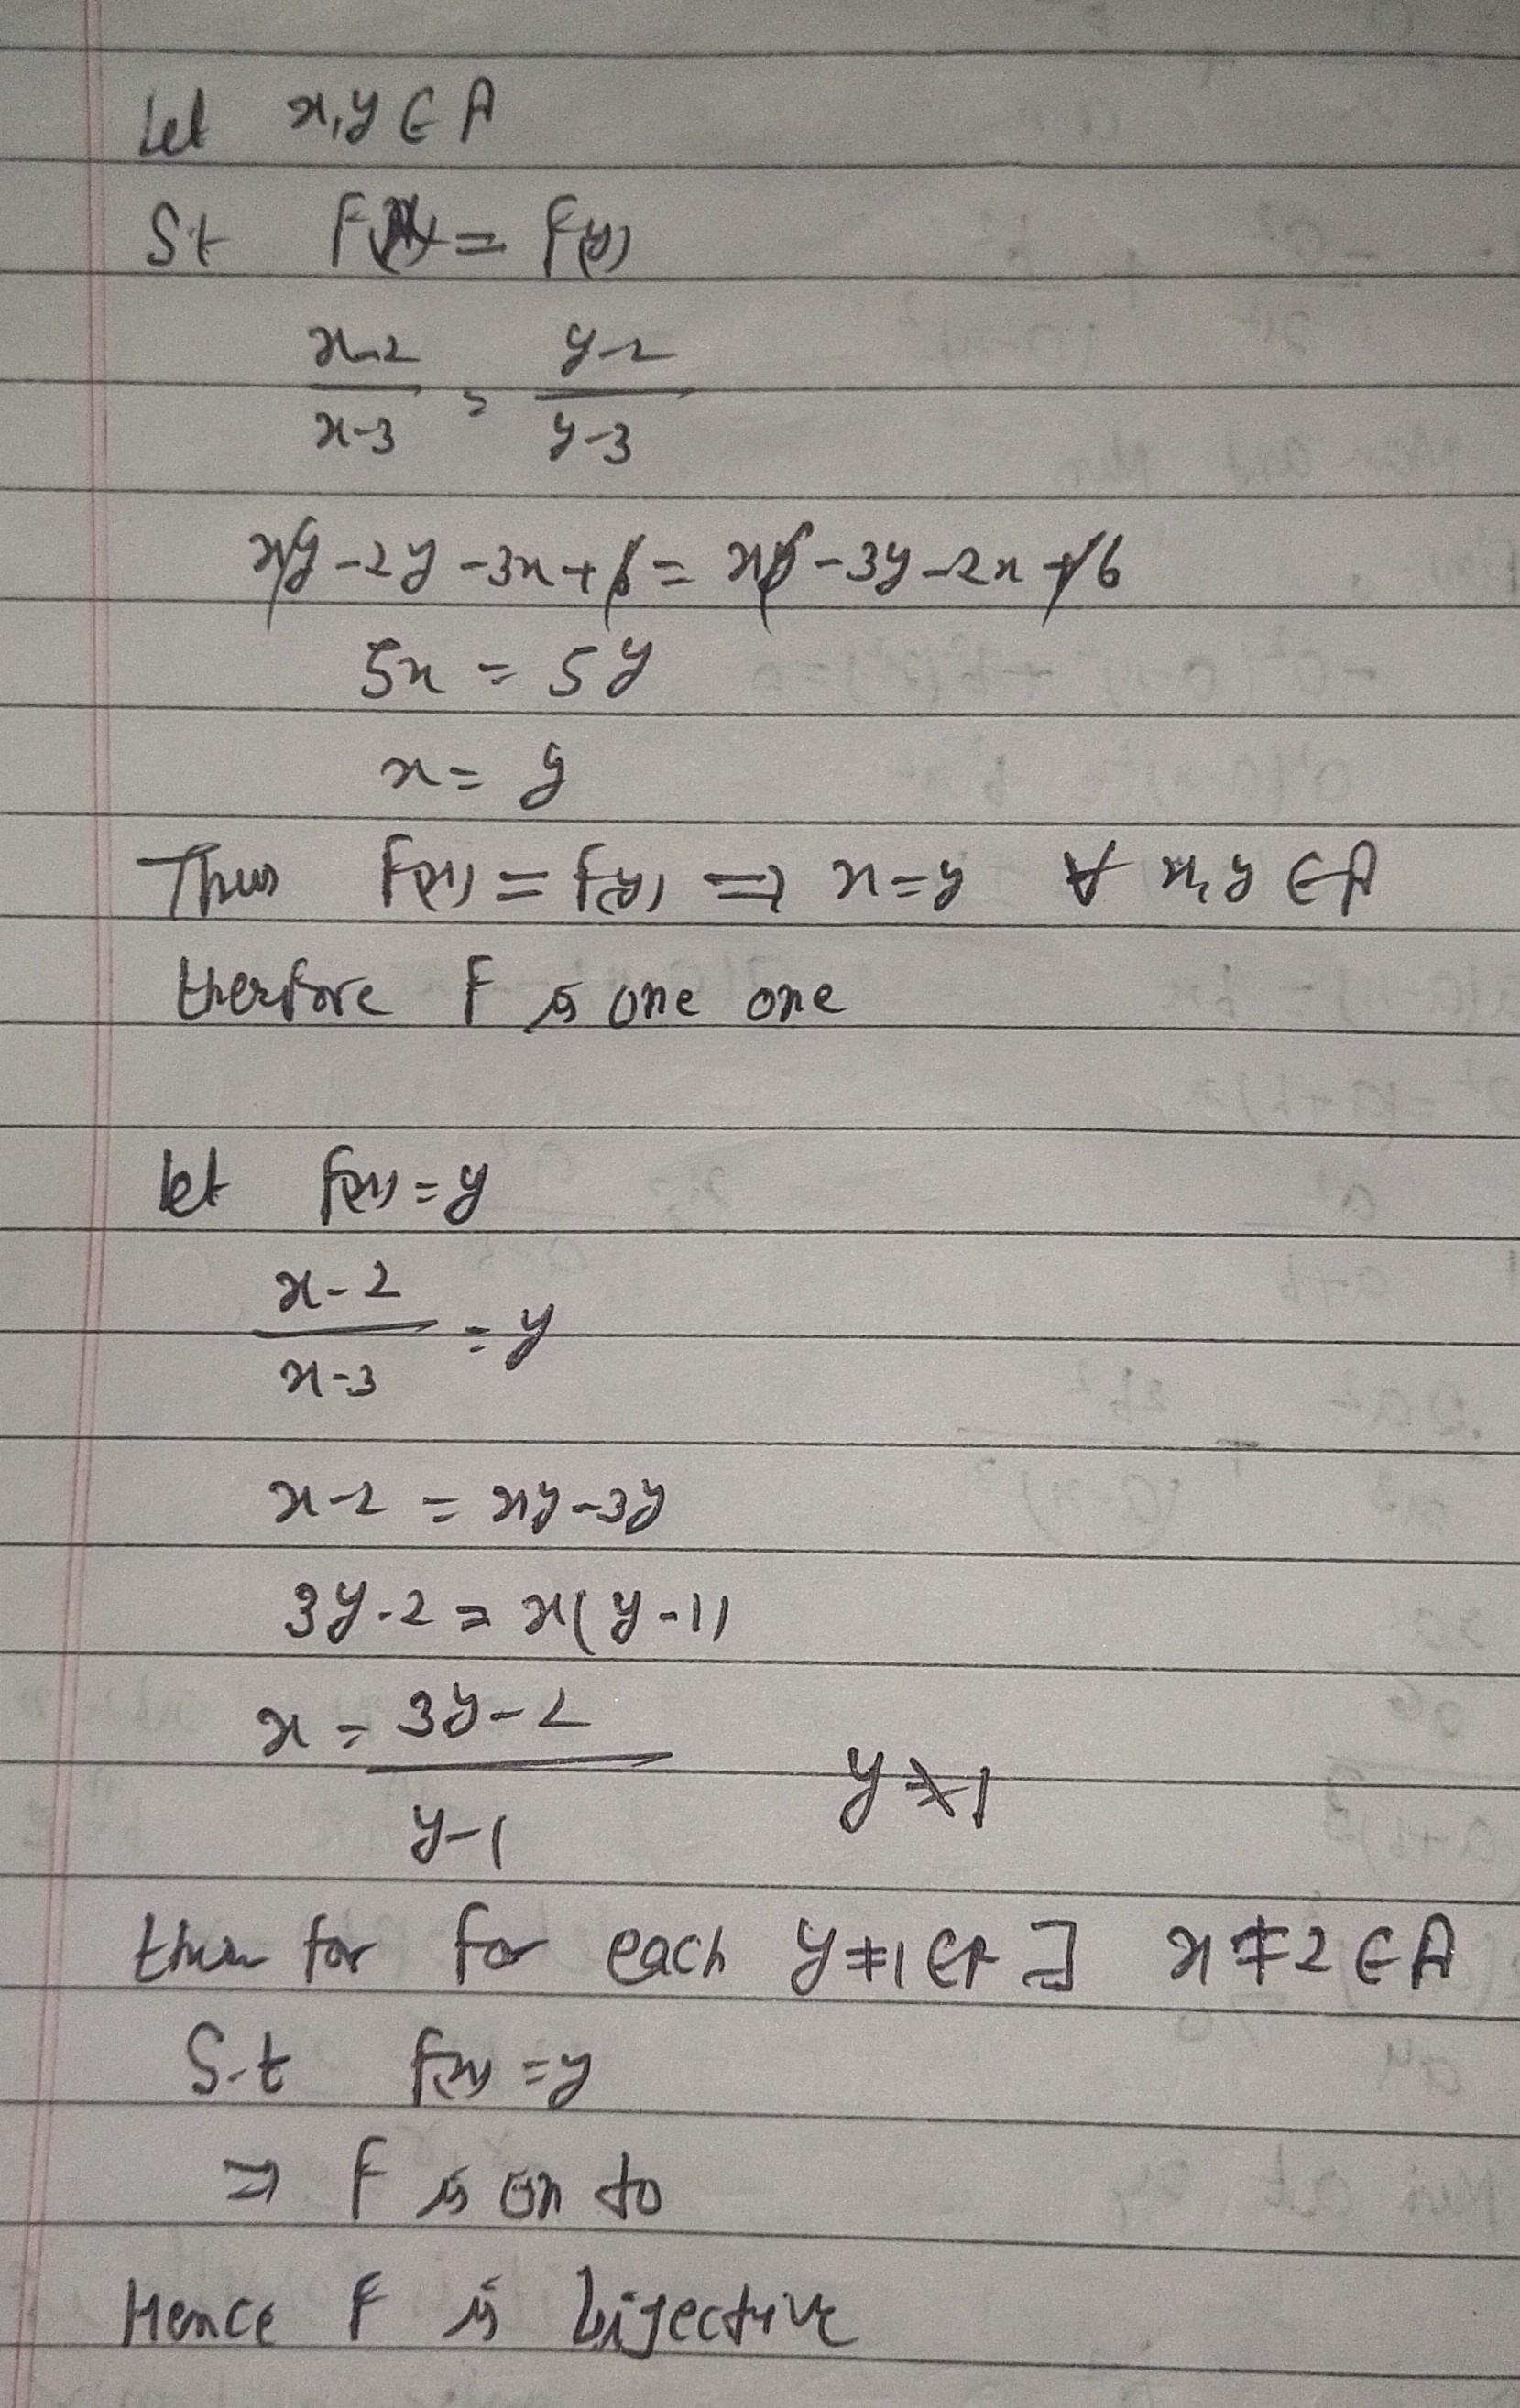 Let x,y ∈ A
St F(x) = F(y)
x-2 / x-3 = y-2 / y-3
xy - 2y - 3x + 6 = xy - 3y - 2x + 6
5x = 5y
x = y
Thus F(x) = F(y) ⇒ x = y ∀ x, y ∈ A
therfore F is one one
let f(x) = y
x-2 / x-3 = y
x-2 = xy-3y
3y-2 = x(y-1)
x = 3y-2 / y-1 y ≠ 1
then for for each y ≠ 1 ∈ ∃ x ≠ 2 ∈ A
S.t f(x) = y
⇒ F is on to
Hence F is bijective